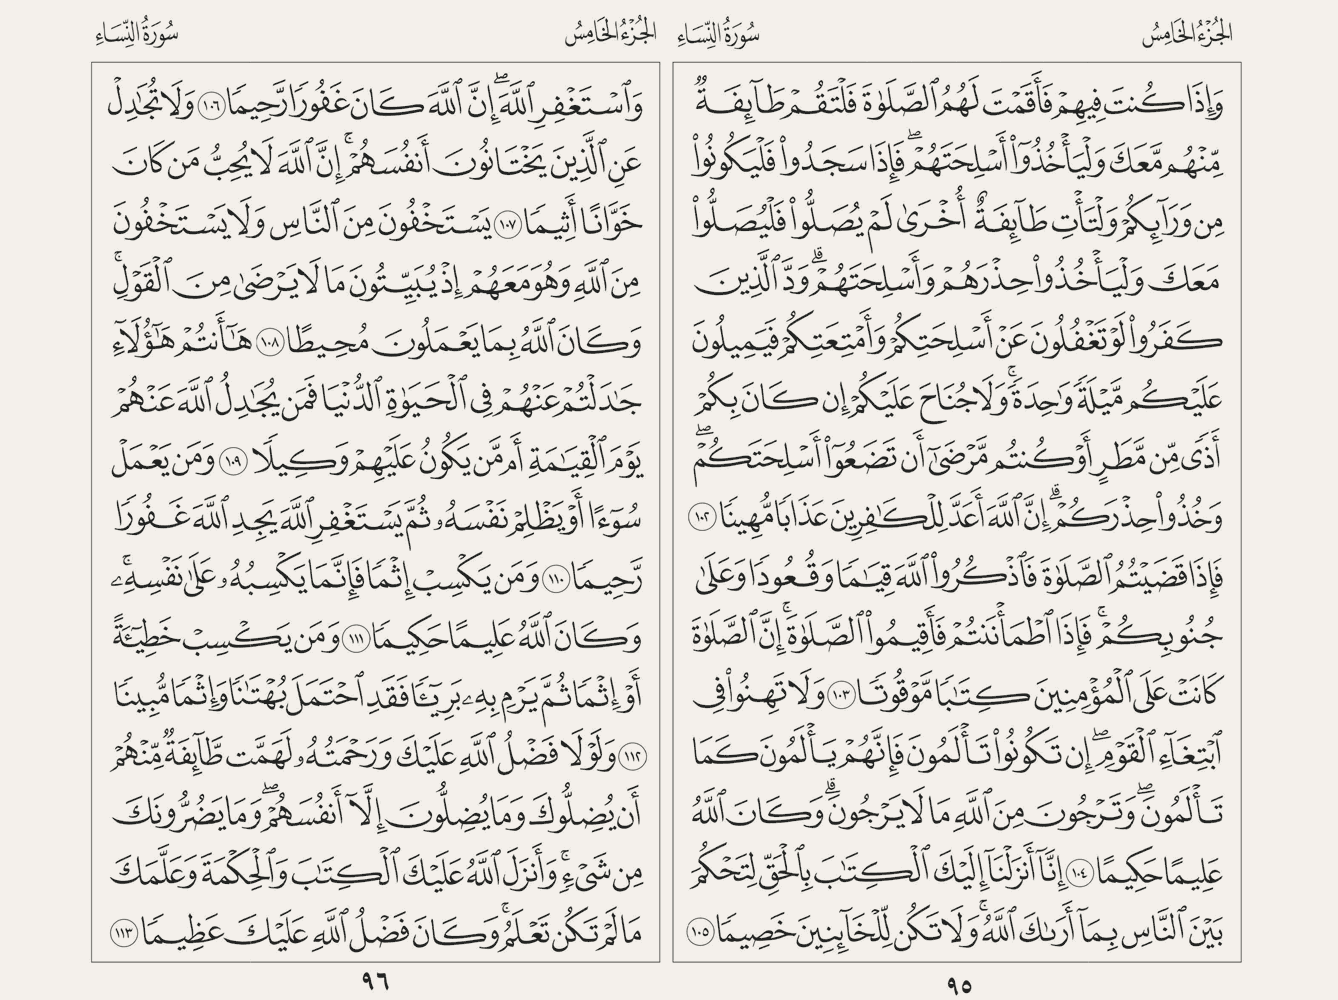 الجُزْءُ الخَامِسُ
سُورَةُ النِّسَاءِ
وَإِذَا كُنتَ فِيهِمْ فَأَقَمْتَ لَهُمُ ٱلصَّلَوٰةَ فَلْتَقُمْ طَآئِفَةٌ
مِّنْهُم مَّعَكَ وَلْيَأْخُذُوٓا۟ أَسْلِحَتَهُمْۖ فَإِذَا سَجَدُوا۟ فَلْيَكُونُوا۟
مِن وَرَآئِكُمْ وَلْتَأْتِ طَآئِفَةٌ أُخْرَىٰ لَمْ يُصَلُّوا۟ فَلْيُصَلُّوا۟
مَعَكَ وَلْيَأْخُذُوا۟ حِذْرَهُمْ وَأَسْلِحَتَهُمْۗ وَدَّ ٱلَّذِينَ
كَفَرُوا۟ لَوْ تَغْفُلُونَ عَنْ أَسْلِحَتِكُمْ وَأَمْتِعَتِكُمْ فَيَمِيلُونَ
عَلَيْكُم مَّيْلَةً وَٰحِدَةًۚ وَلَا جُنَاحَ عَلَيْكُمْ إِن كَانَ بِكُمْ
أَذًى مِّن مَّطَرٍ أَوْ كُنتُم مَّرْضَىٰٓ أَن تَضَعُوٓا۟ أَسْلِحَتَكُمْۖ
وَخُذُوا۟ حِذْرَكُمْۗ إِنَّ ٱللَّهَ أَعَدَّ لِلْكَٰفِرِينَ عَذَابًا مُّهِينًا ١٠٢
فَإِذَا قَضَيْتُمُ ٱلصَّلَوٰةَ فَٱذْكُرُوا۟ ٱللَّهَ قِيَٰمًا وَقُعُودًا وَعَلَىٰ
جُنُوبِكُمْۚ فَإِذَا ٱطْمَأْنَنتُمْ فَأَقِيمُوا۟ ٱلصَّلَوٰةَۚ إِنَّ ٱلصَّلَوٰةَ
كَانَتْ عَلَى ٱلْمُؤْمِنِينَ كِتَٰبًا مَّوْقُوتًا ١٠٣ وَلَا تَهِنُوا۟ فِى
ٱبْتِغَآءِ ٱلْقَوْمِۖ إِن تَكُونُوا۟ تَأْلَمُونَ فَإِنَّهُمْ يَأْلَمُونَ كَمَا
تَأْلَمُونَۖ وَتَرْجُونَ مِنَ ٱللَّهِ مَا لَا يَرْجُونَۗ وَكَانَ ٱللَّهُ
عَلِيمًا حَكِيمًا ١٠٤ إِنَّآ أَنزَلْنَآ إِلَيْكَ ٱلْكِتَٰبَ بِٱلْحَقِّ لِتَحْكُمَ
بَيْنَ ٱلنَّاسِ بِمَآ أَرَىٰكَ ٱللَّهُۚ وَلَا تَكُن لِّلْخَآئِنِينَ خَصِيمًا ١٠٥
٩٥
الجُزْءُ الخَامِسُ
سُورَةُ النِّسَاءِ
وَٱسْتَغْفِرِ ٱللَّهَۖ إِنَّ ٱللَّهَ كَانَ غَفُورًا رَّحِيمًا ١٠٦ وَلَا تُجَٰدِلْ
عَنِ ٱلَّذِينَ يَخْتَانُونَ أَنفُسَهُمْۚ إِنَّ ٱللَّهَ لَا يُحِبُّ مَن كَانَ
خَوَّانًا أَثِيمًا ١٠٧ يَسْتَخْفُونَ مِنَ ٱلنَّاسِ وَلَا يَسْتَخْفُونَ
مِنَ ٱللَّهِ وَهُوَ مَعَهُمْ إِذْ يُبَيِّتُونَ مَا لَا يَرْضَىٰ مِنَ ٱلْقَوْلِۚ
وَكَانَ ٱللَّهُ بِمَا يَعْمَلُونَ مُحِيطًا ١٠٨ هَٰٓأَنتُمْ هَٰٓؤُلَآءِ
جَٰدَلْتُمْ عَنْهُمْ فِى ٱلْحَيَوٰةِ ٱلدُّنْيَا فَمَن يُجَٰدِلُ ٱللَّهَ عَنْهُمْ
يَوْمَ ٱلْقِيَٰمَةِ أَم مَّن يَكُونُ عَلَيْهِمْ وَكِيلًا ١٠٩ وَمَن يَعْمَلْ
سُوٓءًا أَوْ يَظْلِمْ نَفْسَهُۥ ثُمَّ يَسْتَغْفِرِ ٱللَّهَ يَجِدِ ٱللَّهَ غَفُورًا
رَّحِيمًا ١١٠ وَمَن يَكْسِبْ إِثْمًا فَإِنَّمَا يَكْسِبُهُۥ عَلَىٰ نَفْسِهِۦۚ
وَكَانَ ٱللَّهُ عَلِيمًا حَكِيمًا ١١١ وَمَن يَكْسِبْ خَطِيٓـَٔةً
أَوْ إِثْمًا ثُمَّ يَرْمِ بِهِۦ بَرِيٓـًٔا فَقَدِ ٱحْتَمَلَ بُهْتَٰنًا وَإِثْمًا مُّبِينًا
١١٢ وَلَوْلَا فَضْلُ ٱللَّهِ عَلَيْكَ وَرَحْمَتُهُۥ لَهَمَّت طَّآئِفَةٌ مِّنْهُمْ
أَن يُضِلُّوكَ وَمَا يُضِلُّونَ إِلَّآ أَنفُسَهُمْۖ وَمَا يَضُرُّونَكَ
مِن شَىْءٍۚ وَأَنزَلَ ٱللَّهُ عَلَيْكَ ٱلْكِتَٰبَ وَٱلْحِكْمَةَ وَعَلَّمَكَ
مَا لَمْ تَكُن تَعْلَمُۚ وَكَانَ فَضْلُ ٱللَّهِ عَلَيْكَ عَظِيمًا ١١٣
٩٦